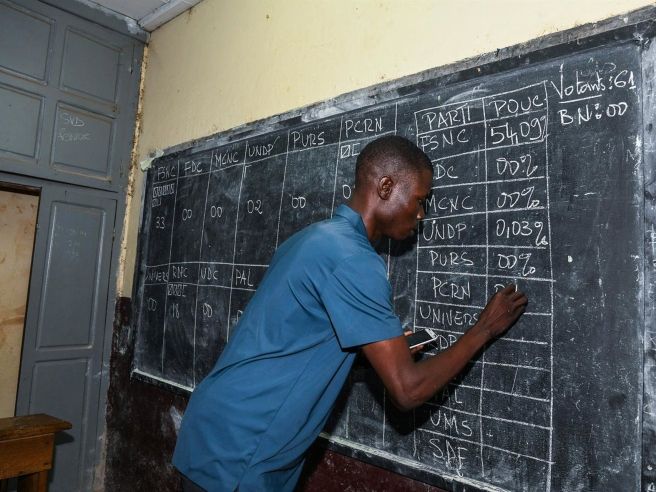 SVD
FSNC FDC MCNC UNDP PURS PCRN
33 00 00 02 00
UNIVERS RDPC UDC PAL
00 18 00
PARTI POUC
FSNC 54,09
DC 00%
MCNC 00%
UNDP 0,03%
PURS 00%
PCRN
UNIVERS
DP
UMS
Votants: 61
BN: 00